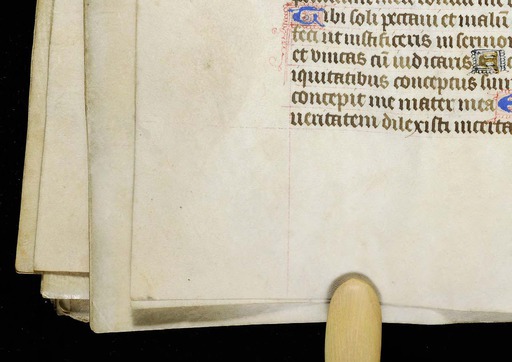 Tibi soli peccaui et malū
feci ut iustificeris in sermon
et vincas cū iudicaris
iquitatibus conceptus sum
concepit me mater mea
ueritatem dilexisti incerta